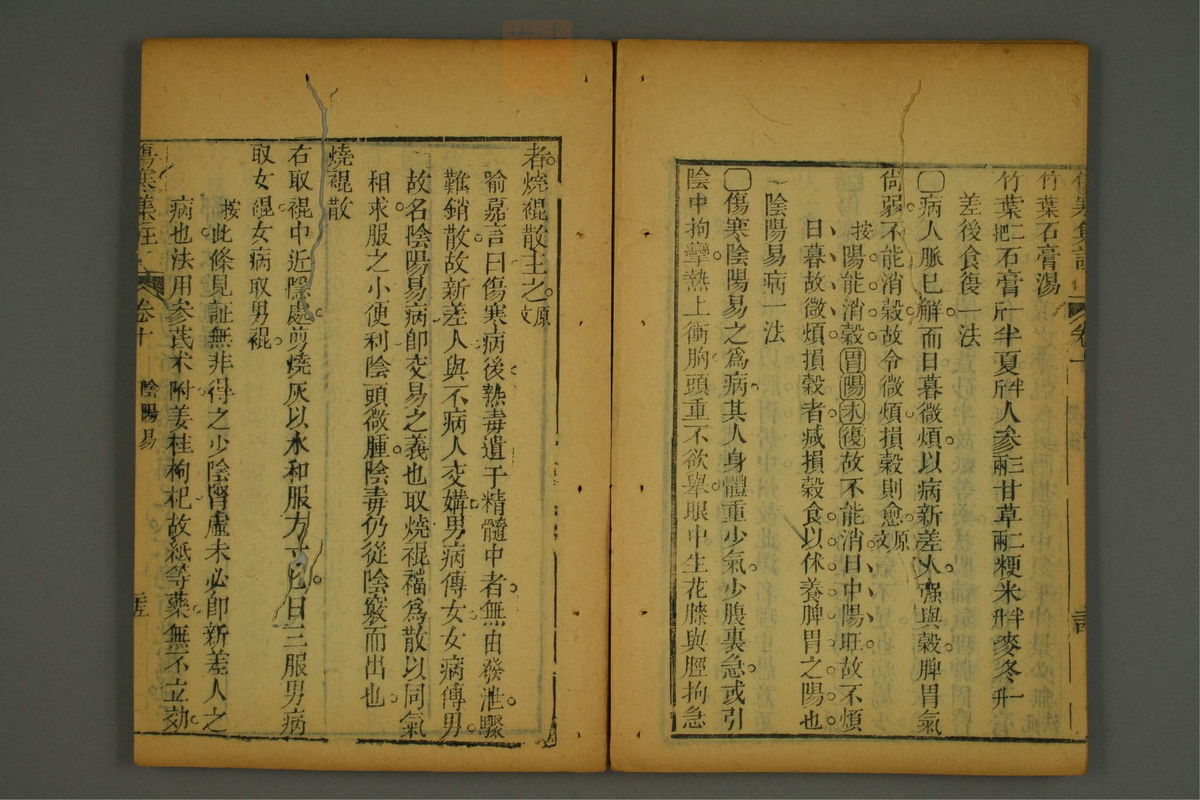 傷寒集註 卷十
竹葉石膏湯
竹葉二把石膏一斤半夏半斤人參三兩甘草二兩粳米半升麥冬一升
差後食復一法
病人脈已解而日暮微煩以病新差人強與穀脾胃氣
尚弱不能消穀故令微煩損穀則愈原文
按陽能消穀胃陽未復故不能消日中陽旺故不煩
日暮故微煩損穀者減損穀食以休養脾胃之陽也
陰陽易病一法
傷寒陰陽易之為病其人身體重少氣少腹裏急或引
陰中拘攣熱上衝胸頭重不欲舉眼中生花膝與脛拘急
者燒裩散主之原文
喻嘉言曰傷寒病後熱毒遺于精髓中者無由發泄驟
難銷散故新差人與不病人交媾男病傳女女病傳男
故名陰陽易病卽交易之義也取燒裩襠為散以同氣
相求服之小便利陰頭微腫陰毒仍從陰竅而出也
燒裩散
右取裩中近隱處剪燒灰以水和服方寸匕日三服男病
取女裩女病取男裩
按此條見証無非得之少陰腎虛未必卽新差人之
病也法用參芪术附姜桂枸杞故紙等藥無不立効
傷寒集註 卷十 陰陽易